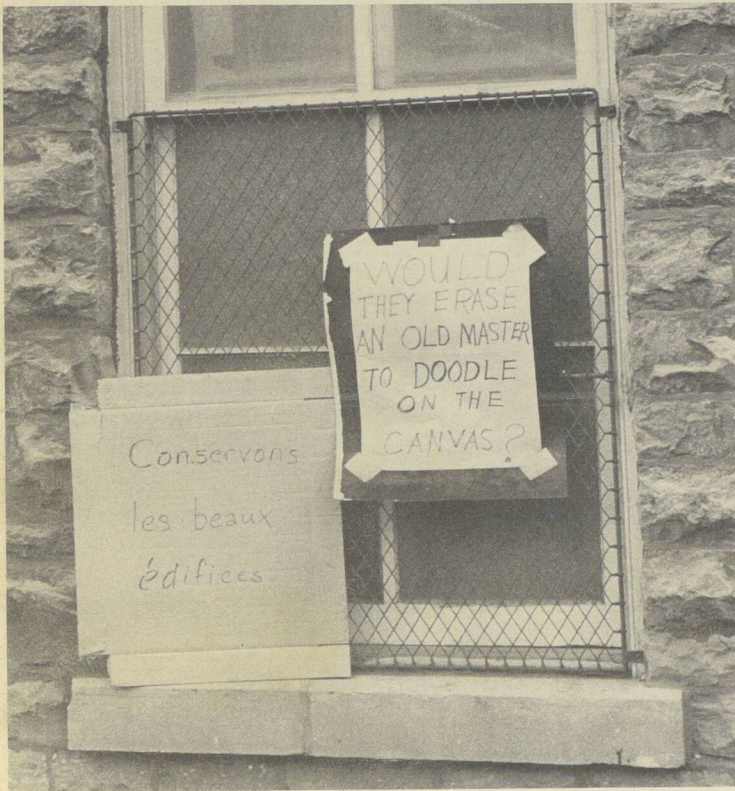 WOULD
THEY ERASE
AN OLD MASTER
TO DOODLE
ON THE
CANVAS?
Conservons
les beaux
édifices